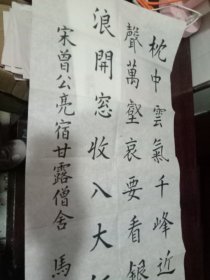 枕中雲氣千峰近
聲萬壑哀要看銀
浪開窓收入大
宋曾公亮宿甘露僧舍 馬